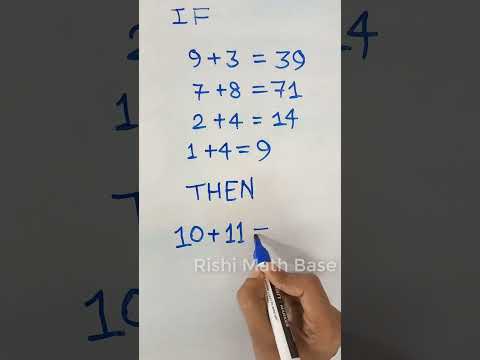 IF
9+3 = 39
7+8 = 71
2+4 = 14
1+4 = 9
THEN
10+11 =
Rishi Math Base